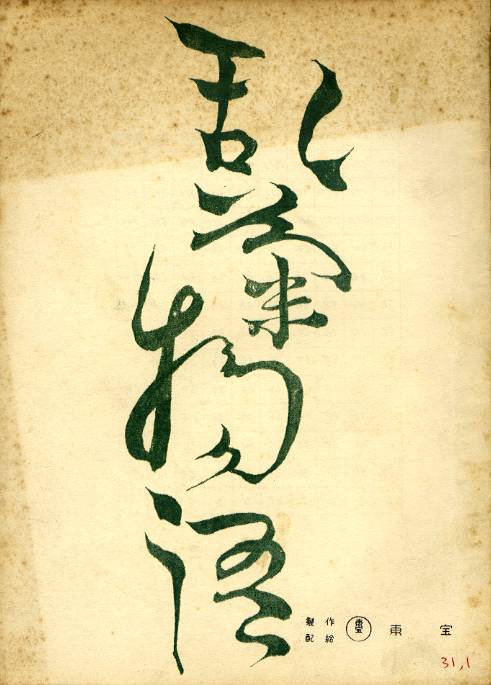 乱菊物語
製作
配給
東宝
東宝
31,1